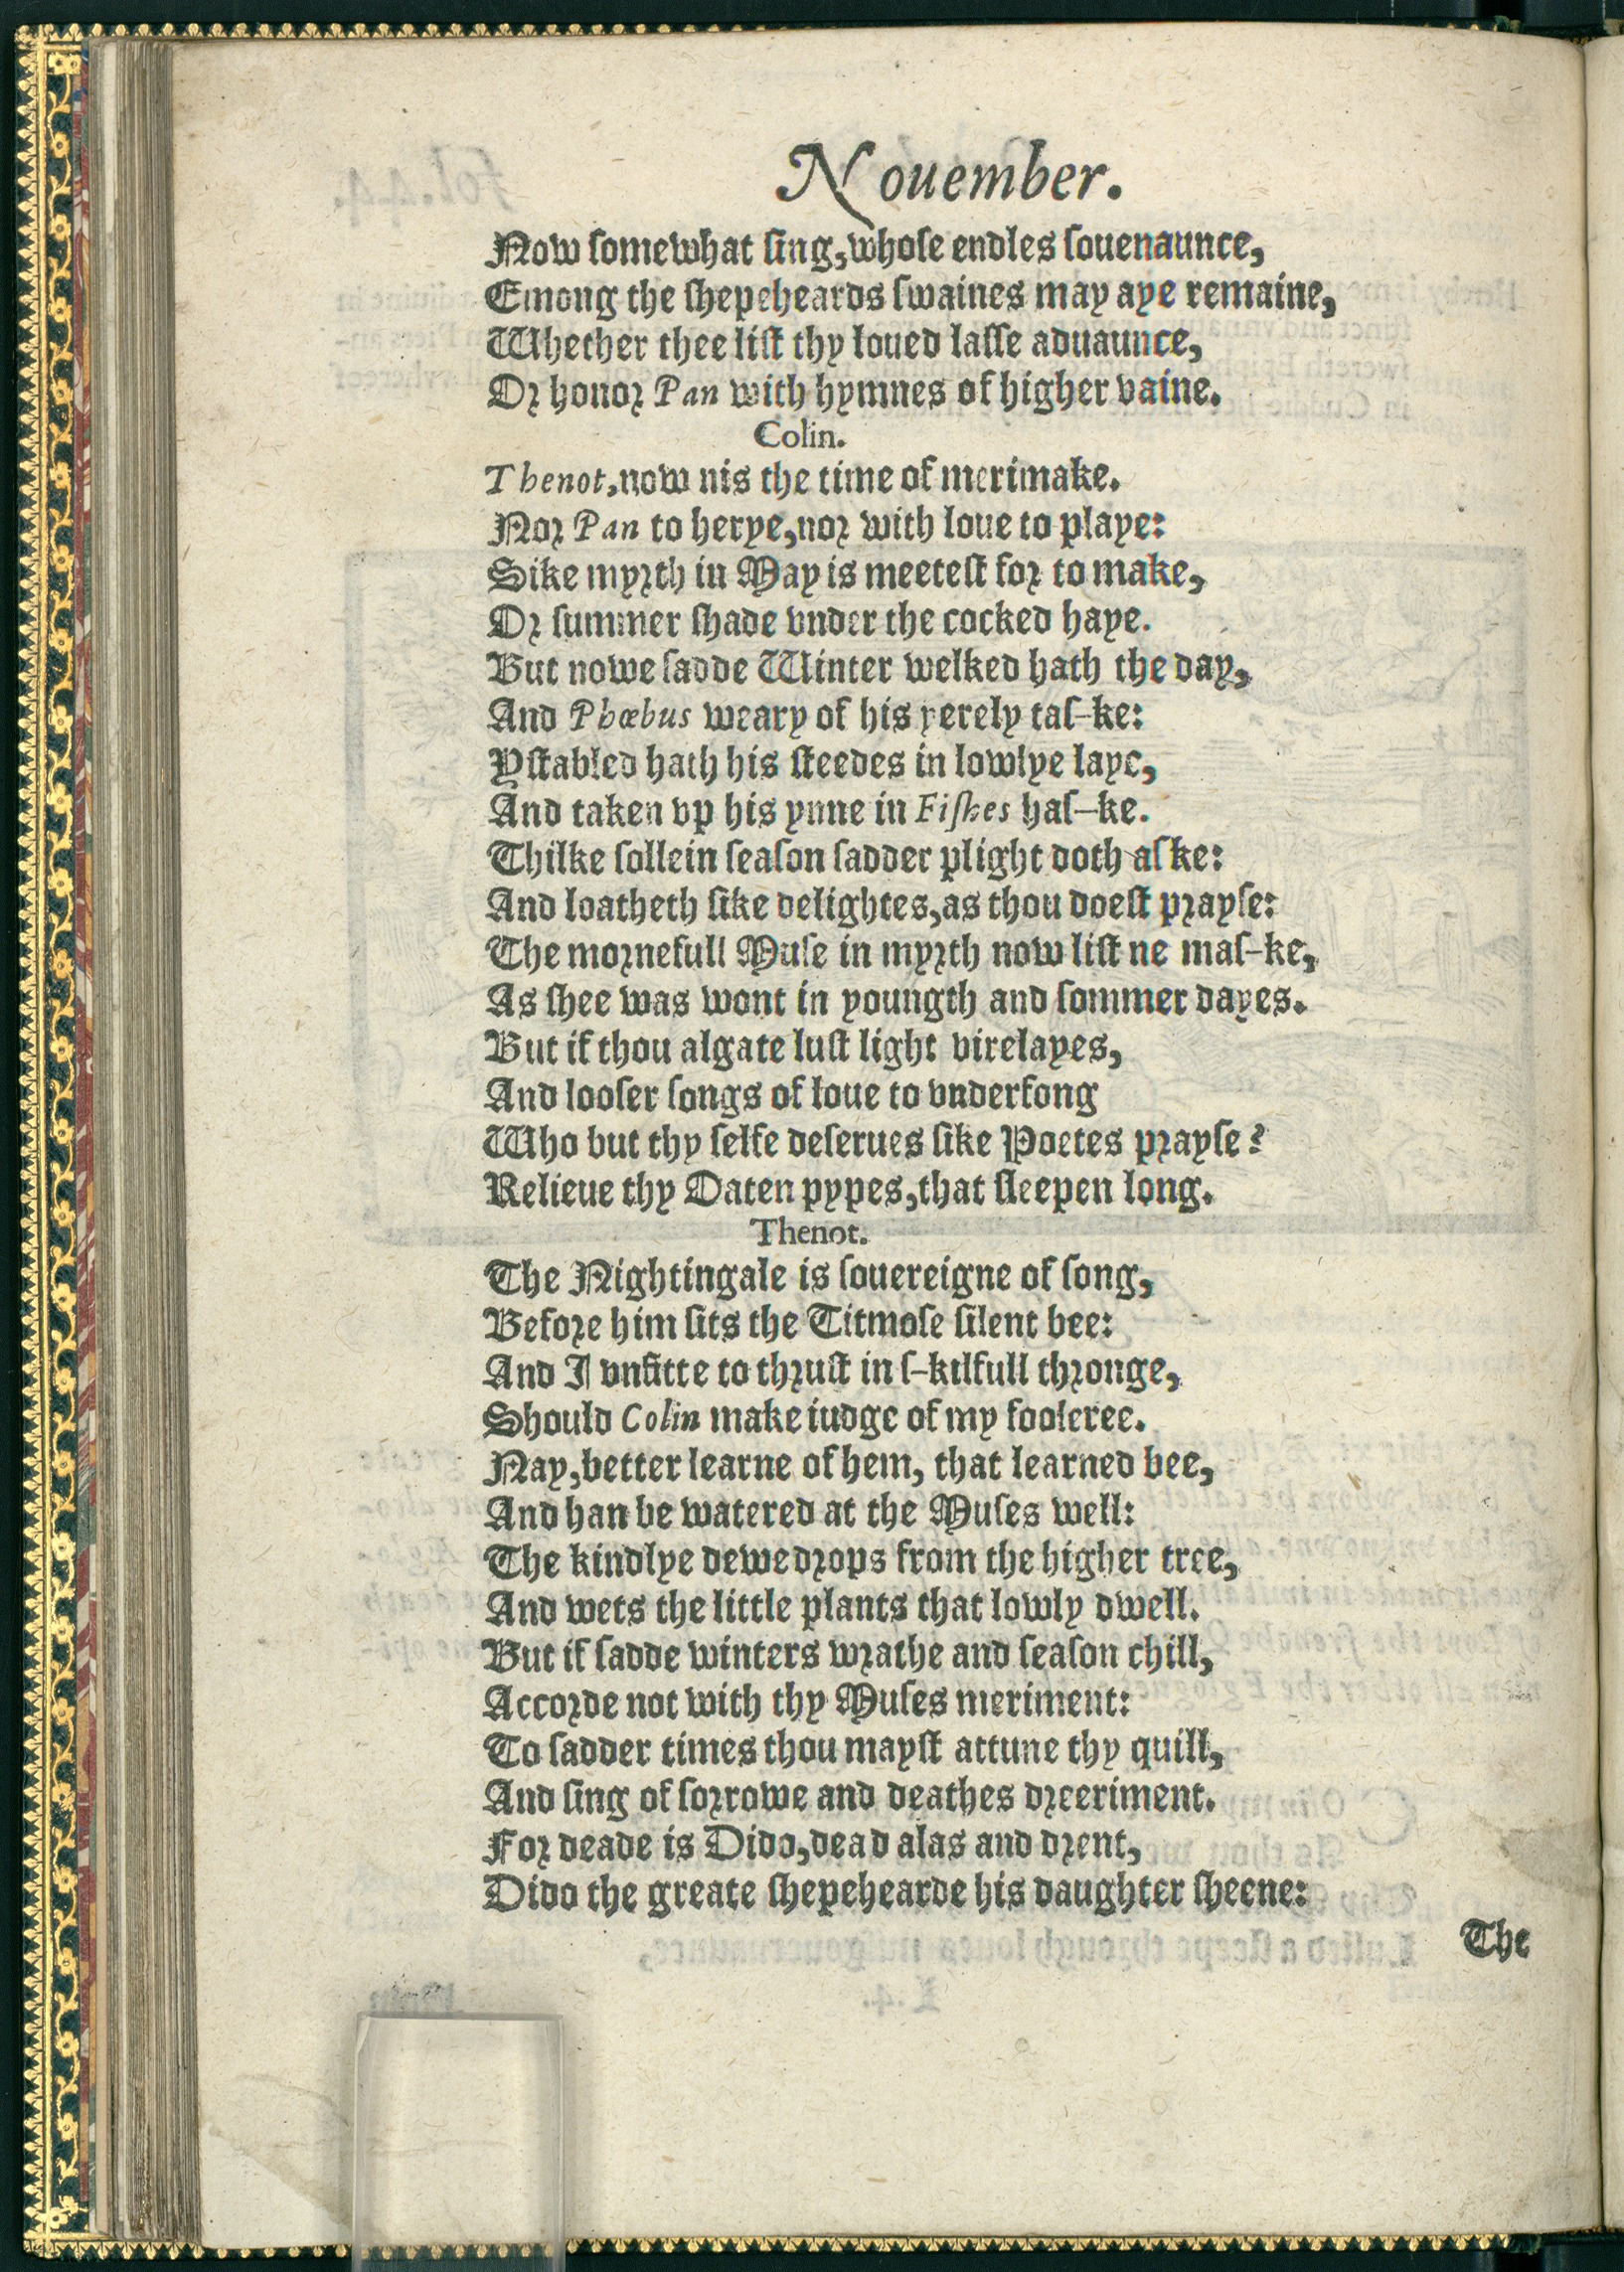 Nouember.
Now ſomewhat ſing, whoſe endles ſouenaunce,
Emong the ſhepeheards ſwaines may aye remaine,
Whether thee liſt thy loued laſſe aduaunce,
Or honor Pan with hymnes of higher vaine.
Colin.
Thenot, now nis the time of merimake.
Nor Pan to herye, nor with loue to playe:
Sike myrth in May is meeteſt for to make,
Or ſummer ſhade vnder the cocked haye.
But nowe ſadde Winter welked hath the day,
And Phœbus weary of his yerely taſ-ke:
Yſtabled hath his ſteedes in lowlye laye,
And taken vp his ynne in Fiſhes haſ-ke.
Thilke ſollein ſeaſon ſadder plight doth aſke:
And loatheth ſike delightes, as thou doeſt prayſe:
The mornefull Muſe in myrth now liſt ne maſ-ke,
As ſhee was wont in youngth and ſommer dayes.
But if thou algate luſt light virelayes,
And looſer ſongs of loue to vnderfong
Who but thy ſelfe deſerues ſike Poetes prayſe?
Relieue thy Oaten pypes, that ſleepen long.
Thenot.
The Nightingale is ſouereigne of ſong,
Before him ſits the Titmoſe ſilent bee:
And I vnfitte to thruſt in ſ-kilfull thronge,
Should Colin make iudge of my fooleree.
Nay, better learne of hem, that learned bee,
And han be watered at the Muſes well:
The kindlye dewe drops from the higher tree,
And wets the little plants that lowly dwell.
But if ſadde winters wrathe and ſeaſon chill,
Accorde not with thy Muſes meriment:
To ſadder times thou mayſt attune thy quill,
And ſing of ſorrowe and deathes dreeriment.
For deade is Dido, dead alas and drent,
Dido the greate ſhepehearde his daughter ſheene:
The